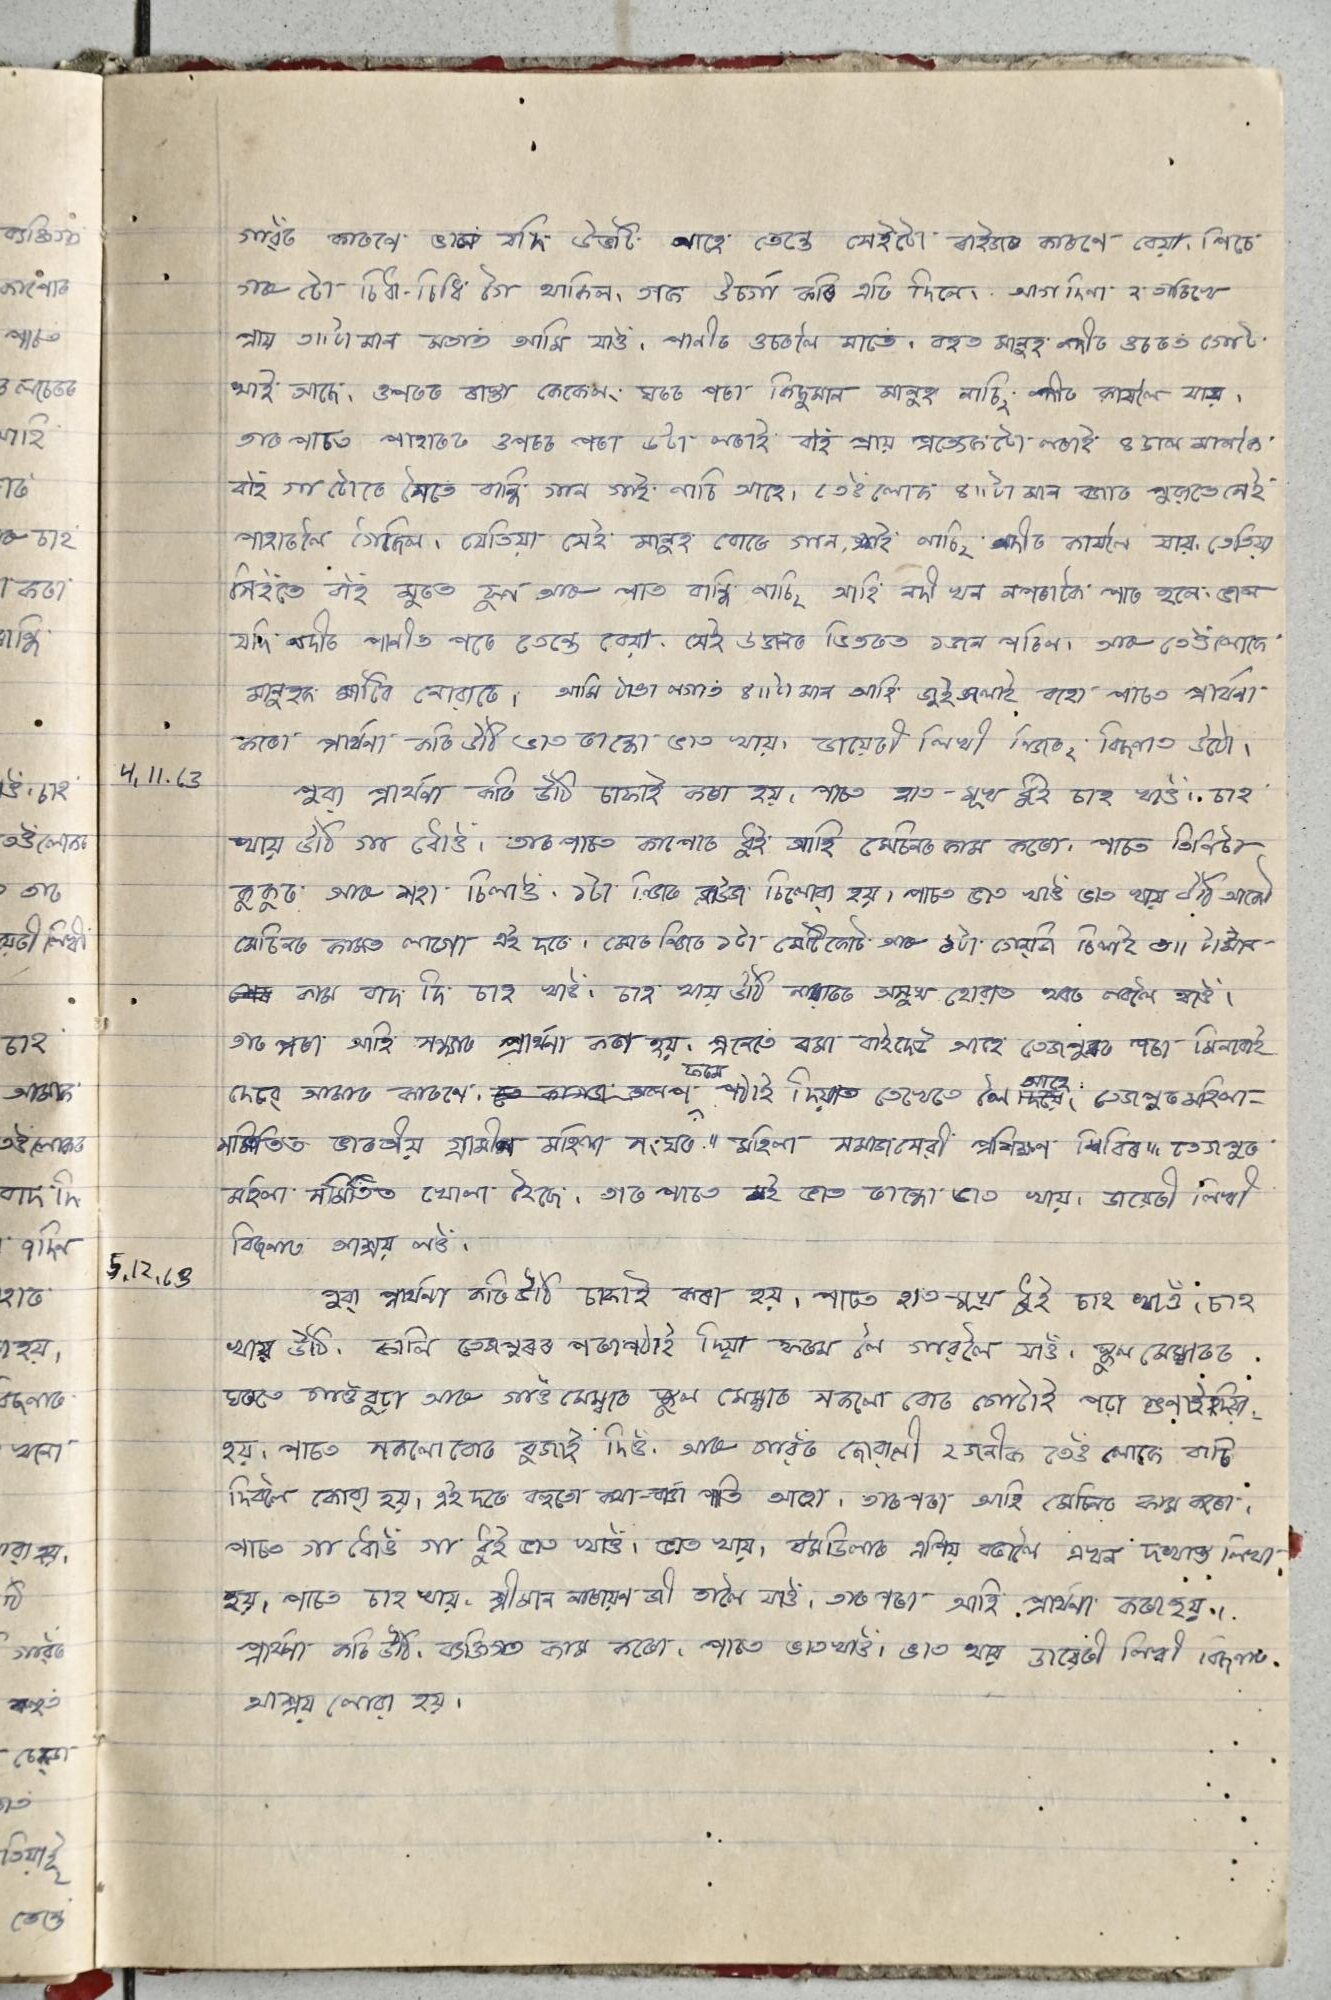 গাৱঁৰ কাৰণে ভাল যদি উভটি নাহে তেন্তে সেইটো ৰাইজৰ কাৰণে বেয়া. পিচে
গৰু টো চিধা-চিধি গৈ থাকিল. গৰু উচৰ্গা কৰি এৰি দিলে. আগ দিনা ২ তাৰিখে
প্ৰায় ৩॥টা মান মতাত আমি যাওঁ. পানীৰ ওচৰলৈ মাতে. বহুত মানুহ নদীৰ ওচৰত গোট
খাই আছে. ওপৰত ৰাস্তা কেকেল. ঘৰৰ পৰা কিছুমান মানুহ নাচি, নদীৰ কাষলৈ যায়.
তাৰ পাচত পাহাৰৰ ওপৰৰ পৰা ৬টা লৰাই বাঁহ প্ৰায় প্ৰত্যেকটো লৰাই ৪ ডাল মানকৈ
বাঁহ গা টোতে সৈতে বান্ধি গান গাই নাচি আহে. তেওঁলোক ৪॥টা মান বজাত পুৱাতে সেই
পাহাৰলৈ গৈছিল. যেতিয়া সেই মানুহ বোৰে গান গাই নাচি, নদীৰ কাষলৈ যায়. তেতিয়া
সিহঁতে বাঁহ মুৰত ফুল আৰু পাত বান্ধি নাচি, আহি নদী খন নপৰাকৈ পাৰ হলে. ভাল
যদি নদীৰ পানীত পৰে তেন্তে বেয়া. সেই ৬জনৰ ভিতৰত ১জন পৰিল. আৰু তেওঁলোকে
মানুহক মাৰিব নোৱাৰে. আমি ঠাণ্ডা লগাত ৪॥টা মান আহি জুইজলাই বহো পাচত প্ৰাৰ্থনা
কৰো প্ৰাৰ্থনা কৰি উঠি ভাত ৰান্ধো ভাত খায়. ডায়েৰী লিখী নিজৰ, বিছনাত উঠো.
4.11.63
পুৱা প্ৰাৰ্থনা কৰি উঠি চাফাই কৰা হয়. পাচত হাত-মূখ ধুই চাহ খাওঁ. চাহ
খায় উঠি গা ধোওঁ. তাৰ পাচত কাপোৰ ধুই আহি মেচিনৰ কাম কৰো. পাচত তিনিটা
কুকুৰ আৰু মহা চিলাওঁ. ১টা নিজৰ ব্লাউজ চিলোৱা হয়. পাচত ভাত খাওঁ ভাত খায় উঠি আকৌ
মেচিনৰ কামত লাগো এই দৰে. মোৰ নিজৰ ১টা মেটিকোট আৰু ১টা গেঞ্জি চিলাই ৩॥ টামান
কাম বাদ দি চাহ খাওঁ. চাহ খায় উঠি অসুখ হোৱাত খবৰ লবলৈ যাওঁ.
তাৰ পৰা আহি সন্ধ্যাৰ প্ৰাৰ্থনা কৰা হয়. ৰমা বাইদেউ আহে তেজপুৰৰ পৰা
দেৱে আমাৰ কাৰণে. ফৰম পঠাই দিয়াত তেখেতে লৈ আহে. তেজপুৰ মহিলা-
সমিতিত ভাৰতীয় গ্ৰামীন মহিলা সংঘৰ "মহিলা সমাজসেৱী প্ৰশিক্ষণ শিবিৰ" তেজপুৰ
মহিলা সমিতিত খোলা হৈছে. তাৰ পাচত মই ভাত ৰান্ধো ভাত খায়. ডায়েৰী লিখী
বিছনাত আশ্ৰয় লওঁ.
5.12.63
পুৱা প্ৰাৰ্থনা কৰি উঠি চাফাই কৰা হয়. পাচত হাত-মুখ ধুই চাহ খাওঁ. চাহ
খায় উঠি. কালি তেজপুৰৰ পৰা পঠাই দিয়া ফৰম লৈ গাৱঁলৈ যাওঁ. স্কুল মেম্বাৰৰ
ঘৰতে গাওঁবুঢ়া আৰু গাওঁ মেম্বাৰ স্কুল মেম্বাৰ সকলো বোৰ গোটাই পঢ়া শুনাই দিয়া
হয়. পাচত সকলোবোৰ বুজাই দিওঁ. আৰু গাৱঁৰ ছোৱালী ২জনীক তেওঁ লোকে বাচি
দিবলৈ কোৱা হয়. এই দৰে বহুতো কথা-বাৰ্ত্তা পাতি আহো. তাৰপৰা আহি মেচিনৰ কাম কৰো.
পাচত গা ধোওঁ গা ধুই ভাত খাওঁ. ভাত খায়. বমডিলাৰ এপিয় বৰালৈ এখন দৰ্খাস্ত লিখা
হয়. পাচত চাহ খায়. শ্ৰীমান নাৰায়ণ জী তালৈ যাওঁ. তাৰ পৰা আহি প্ৰাৰ্থনা কৰা হয়.
প্ৰাৰ্থনা কৰি উঠি. ব্যক্তিগত কাম কৰো. পাচত ভাত খাওঁ. ভাত খায় ডায়েৰী লিখী বিছনাত
আশ্ৰয় লোৱা হয়.